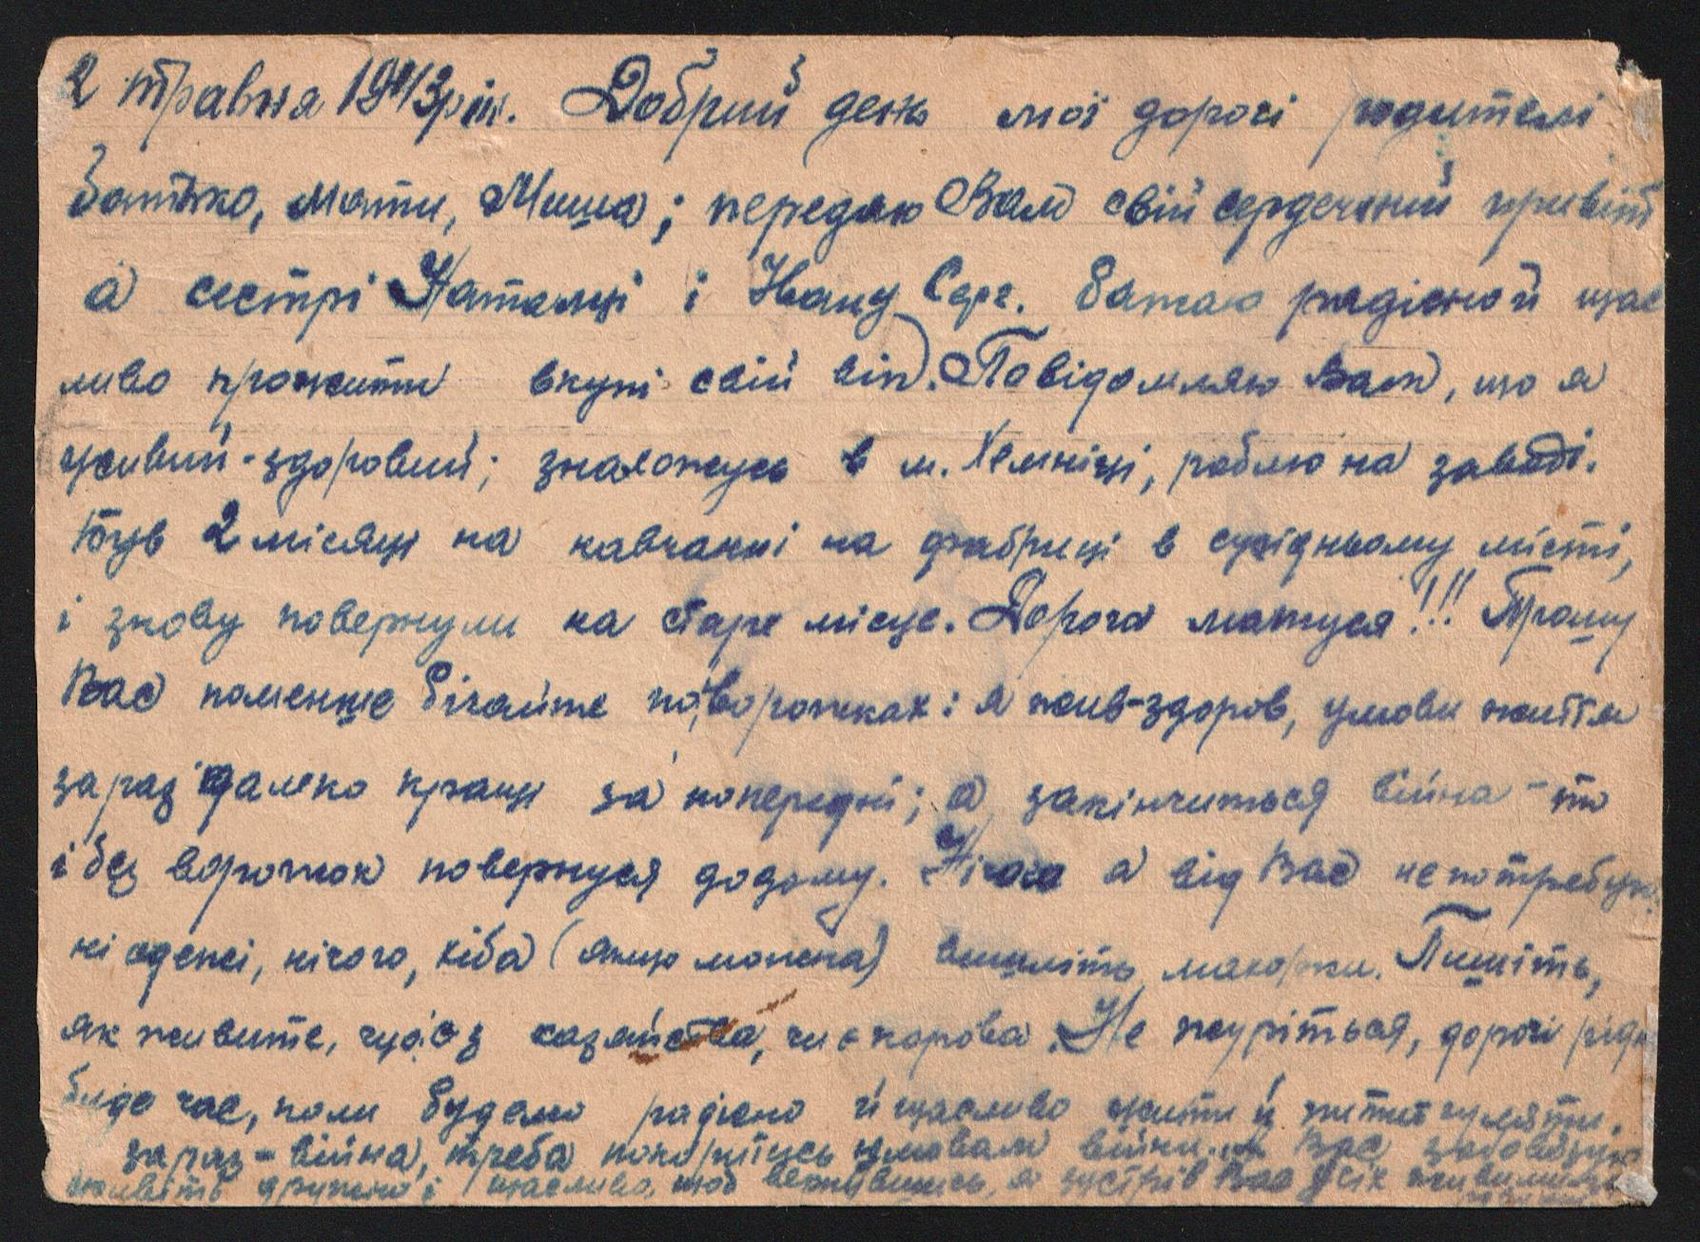 2 травня 1943 рік. Добрий день мої дорогі родителі
батько, мати, Миша; передаю Вам свій сердечний привіт
а сестрі Наталці і Івану Серг. бажаю радісно й щас
ливо прожити вкупі свій вік. Повідомляю Вам, що я
живий-здоровий; знахожусь в м. Хемніці, роблю на заводі.
Був 2 місяці на навчанні на фабриці в сусідньому місті,
і знову повернули на старе місце. Дорога матуся!!! Прошу
Вас поменше бігайте по ворожках: я жив-здоров, умови життя
зараз далеко кращі за попередні; а закінчиться війна - то
і без ворожок повернуся додому. Нічого я від Вас не потребую:
ні одежі, нічого, хіба (якщо можна) вишліть махорки. Пишіть,
як живите, що є з хазяйства, чи є корова. Не журіться, дорогі рідні
буде час, коли будемо радісно й щасливо жити й гуляти.
зараз - війна, треба покорітись умовам війни. А Вас
живіть дружно і щасливо, щоб вернувшись, я зустрів Вас усіх живими